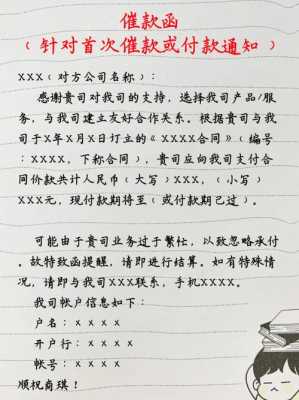 催款函
（针对首次催款或付款通知）
XXX（对方公司名称）：
感谢贵司对我司的支持，选择我司产品/服
务，与我司建立友好合作关系。根据贵司与我
司于X年X月X日订立的《XXXX合同》（编号
：XXXX，下称合同），贵司应向我司支付合
同价款共计人民币（大写）XXX，（小写）
XXX元，现付款期将至（或付款期已过）。
可能由于贵司业务过于繁忙，以致忽略承付
。故特致函提醒，请即进行结算。如有特殊情
况，请即与我司XXX联系，手机XXXX。
我司帐户信息如下：
户名：X X X X
开户行：X X X X
帐号：X X X X
顺祝商琪！